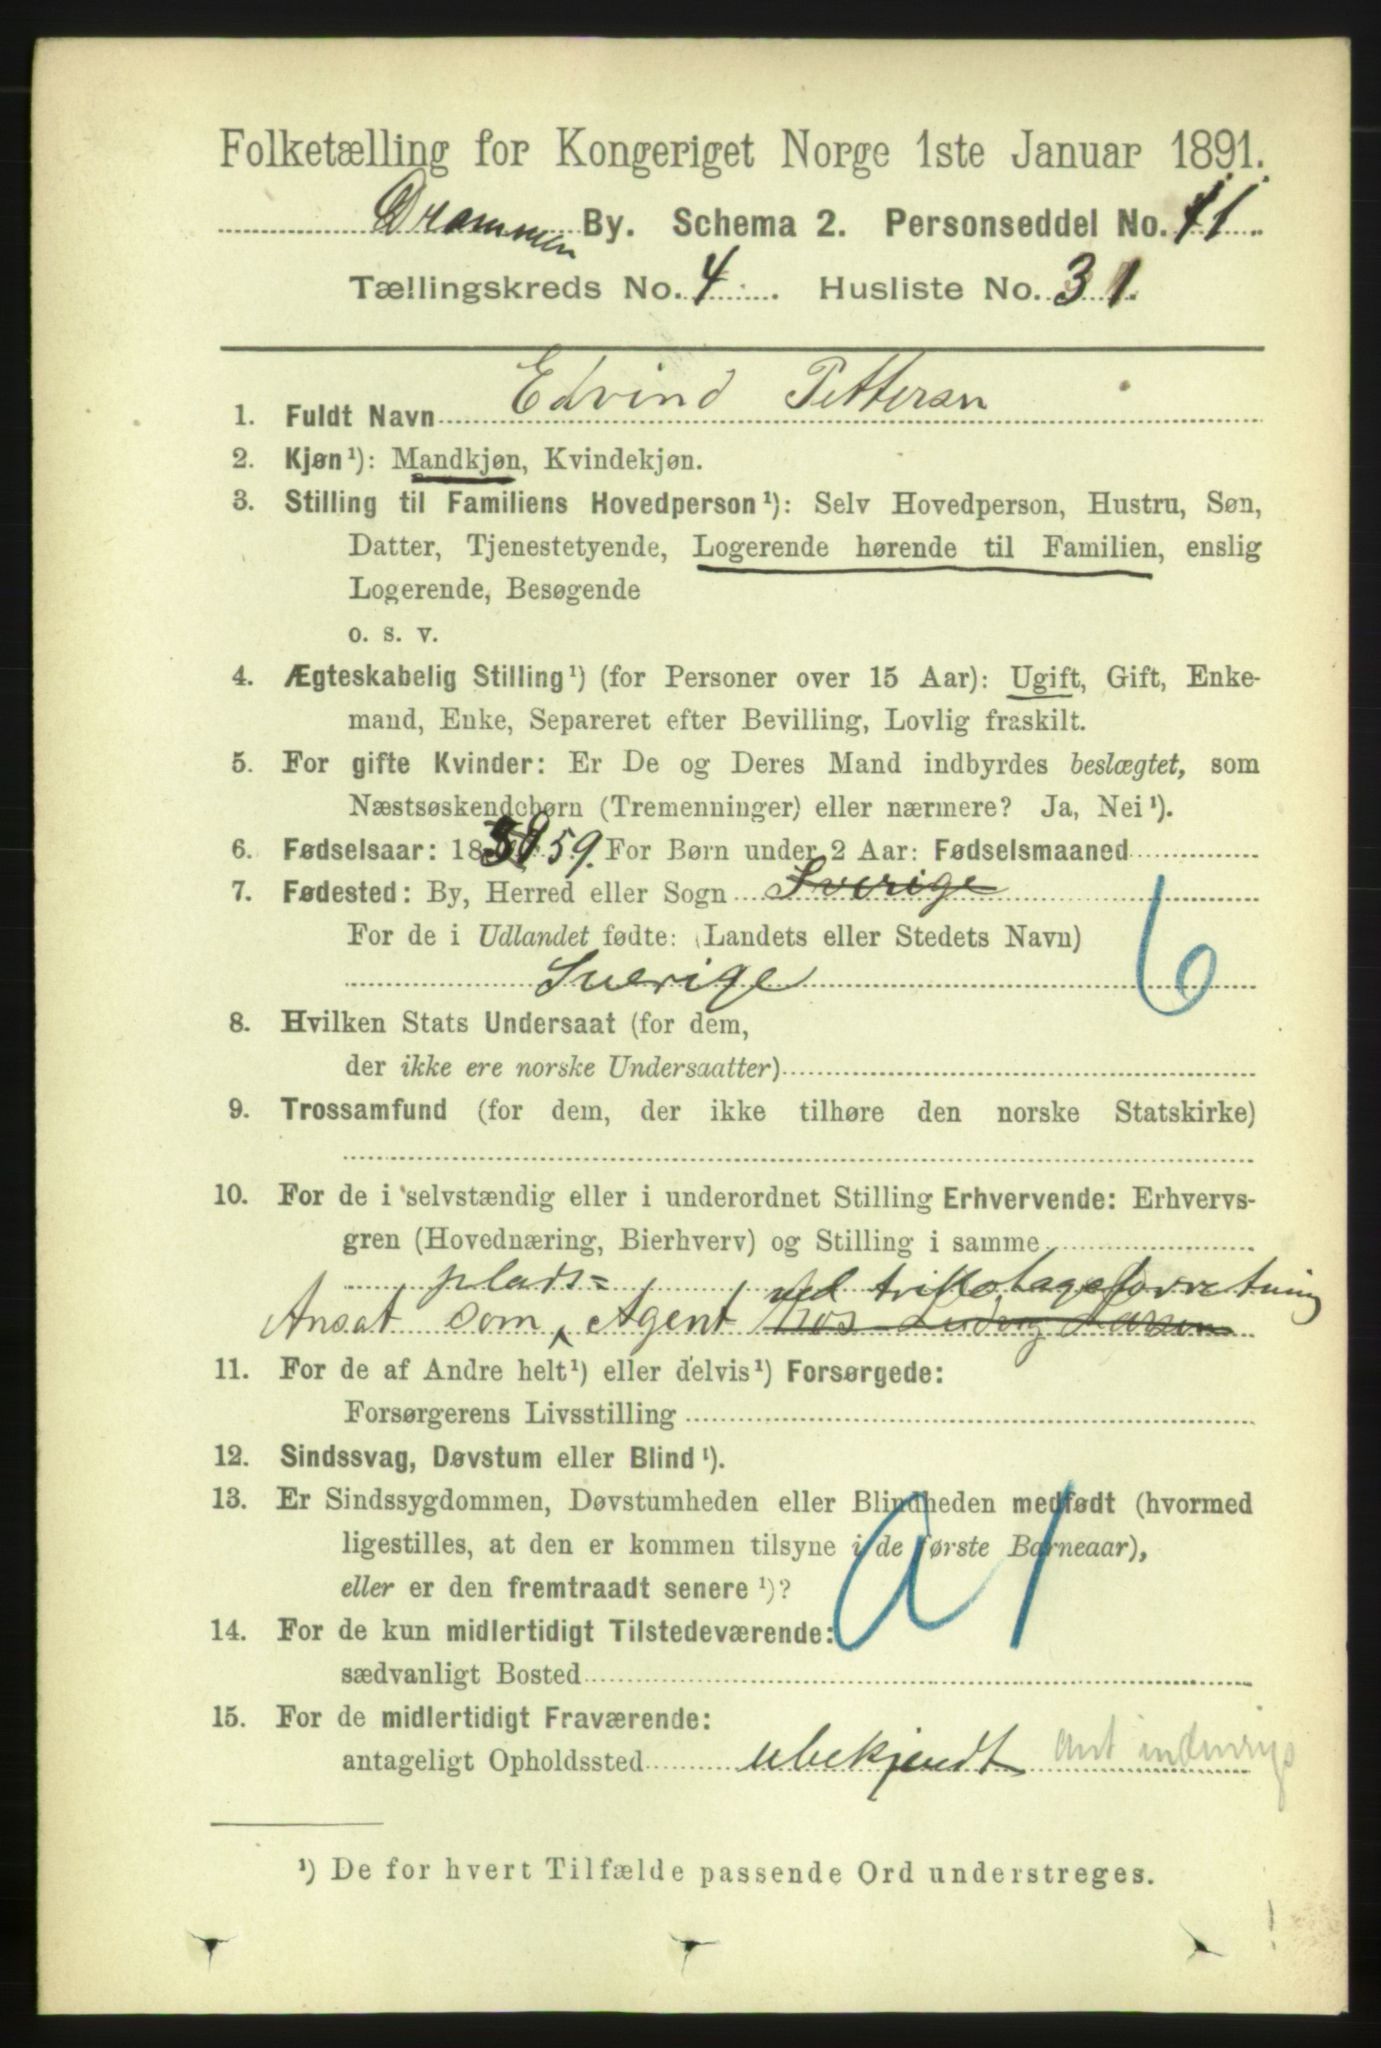 Folketælling for Kongeriget Norge 1ste Januar 1891.
Drammen By. Schema 2. Personseddel No. 11.
Tællingskreds No. 4. Husliste No. 31.
1. Fuldt Navn Edvind Pettersen
2. Kjøn¹): Mandkjøn, Kvindekjøn.
3. Stilling til Familiens Hovedperson¹): Selv Hovedperson, Hustru, Søn,
Datter, Tjenestetyende, Logerende hørende til Familien, enslig
Logerende, Besøgende
o. s. v.
4. Ægteskabelig Stilling¹) (for Personer over 15 Aar): Ugift, Gift, Enke-
mand, Enke, Separeret efter Bevilling, Lovlig fraskilt.
5. For gifte Kvinder: Er De og Deres Mand indbyrdes beslægtet, som
Næstsøskendebørn (Tremenninger) eller nærmere? Ja, Nei¹).
6. Fødselsaar: 18 59. For Børn under 2 Aar: Fødselsmaaned
7. Fødested: By, Herred eller Sogn Sverige
For de i Udlandet fødte: (Landets eller Stedets Navn)
6
Sverige
8. Hvilken Stats Undersaat (for dem,
der ikke ere norske Undersaatter)
9. Trossamfund (for dem, der ikke tilhøre den norske Statskirke)
10. For de i selvstændig eller i underordnet Stilling Erhvervende: Erhvervs-
gren (Hovednæring, Bierhverv) og Stilling i samme
plads= ved trikotageforretning
Ansat som Agent hos Ludvig Larsen
11. For de af Andre helt¹) eller delvis¹) Forsørgede:
Forsørgerens Livsstilling
12. Sindssvag, Døvstum eller Blind¹).
13. Er Sindssygdommen, Døvstumheden eller Blindheden medfødt (hvormed
ligestilles, at den er kommen tilsyne i de første Barneaar),
eller er den fremtraadt senere¹)?
a 1
14. For de kun midlertidigt Tilstedeværende:
sædvanligt Bosted
15. For de midlertidigt Fraværende:
antageligt Opholdssted ubekjendt ant indenrigs
¹) De for hvert Tilfælde passende Ord understreges.